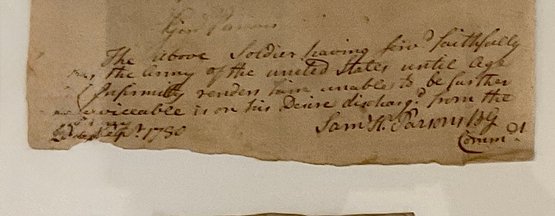 Genl Parsons
The above Soldier having serv'd faithfully
the Army of the united States until age
Infirmity renders him unable to be further
serviceable is on his Desire discharg'd from the
Sept. 1780
Saml H. Parsons BG
Commdt